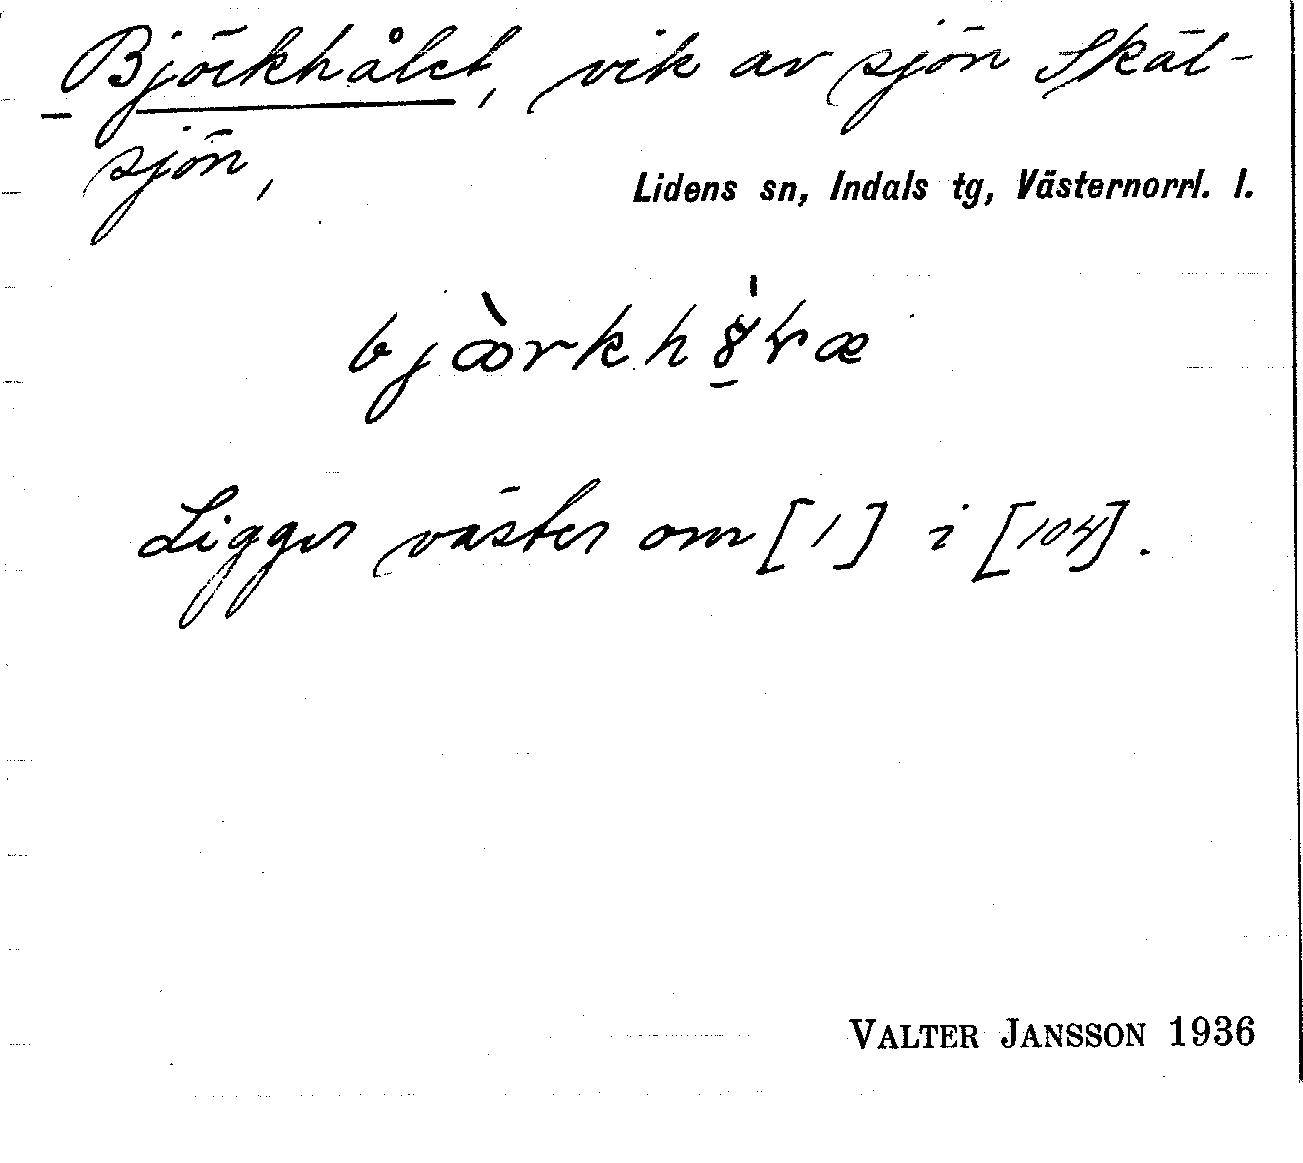 Björkhålet, vik av sjön Skäl-
sjön,
Lidens sn, Indals tg, Västernorrl. l.
Ligger väster om [1] i [104].
VALTER JANSSON 1936